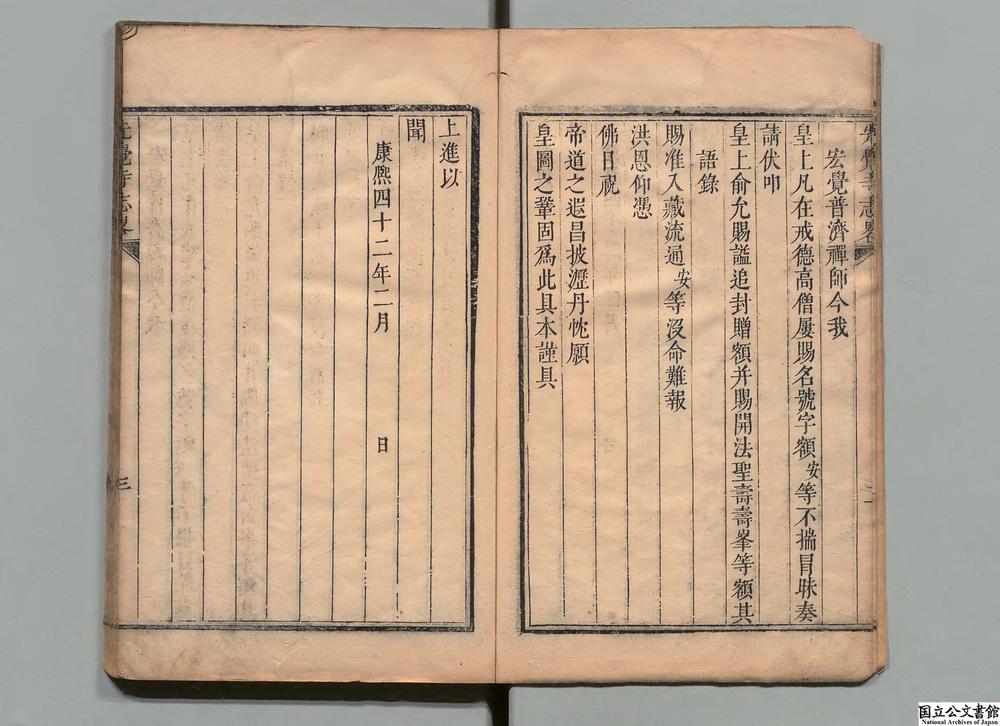 宏覺普濟禪師今我
皇上凡在戒德高僧屢賜名號字額安等不揣冒昧奏
請伏叩
皇上俞允賜謚追封贈額并賜開法聖壽壽峯等額其
語錄
賜准入藏流通安等沒命難報
洪恩仰憑
佛日祝
帝道之遐昌披瀝丹忱願
皇圖之鞏固爲此具本謹具
上進以
聞
康熙四十二年二月 日
三
国立公文書館
National Archives of Japan